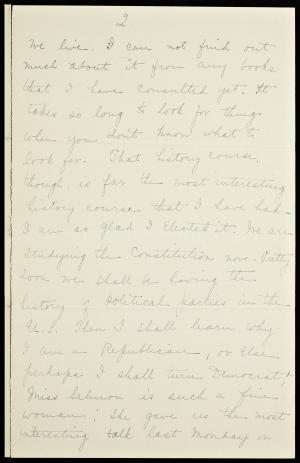 2
we live. I can not find out
much about it from any books
that I have consulted yet. It
takes so long to look for things
when you don't know what to
look for. That history course,
though, is far the most interesting
history course that I have had.
I am so glad I elected it. We are
studying the Constitution now. Pretty
soon we shall be having the
history of political parties in the
U.S. Then I shall learn why
I am a Republican, or else
perhaps I shall turn Democrat!
Miss Salmon is such a fine
woman! She gave us the most
interesting talk last Monday on